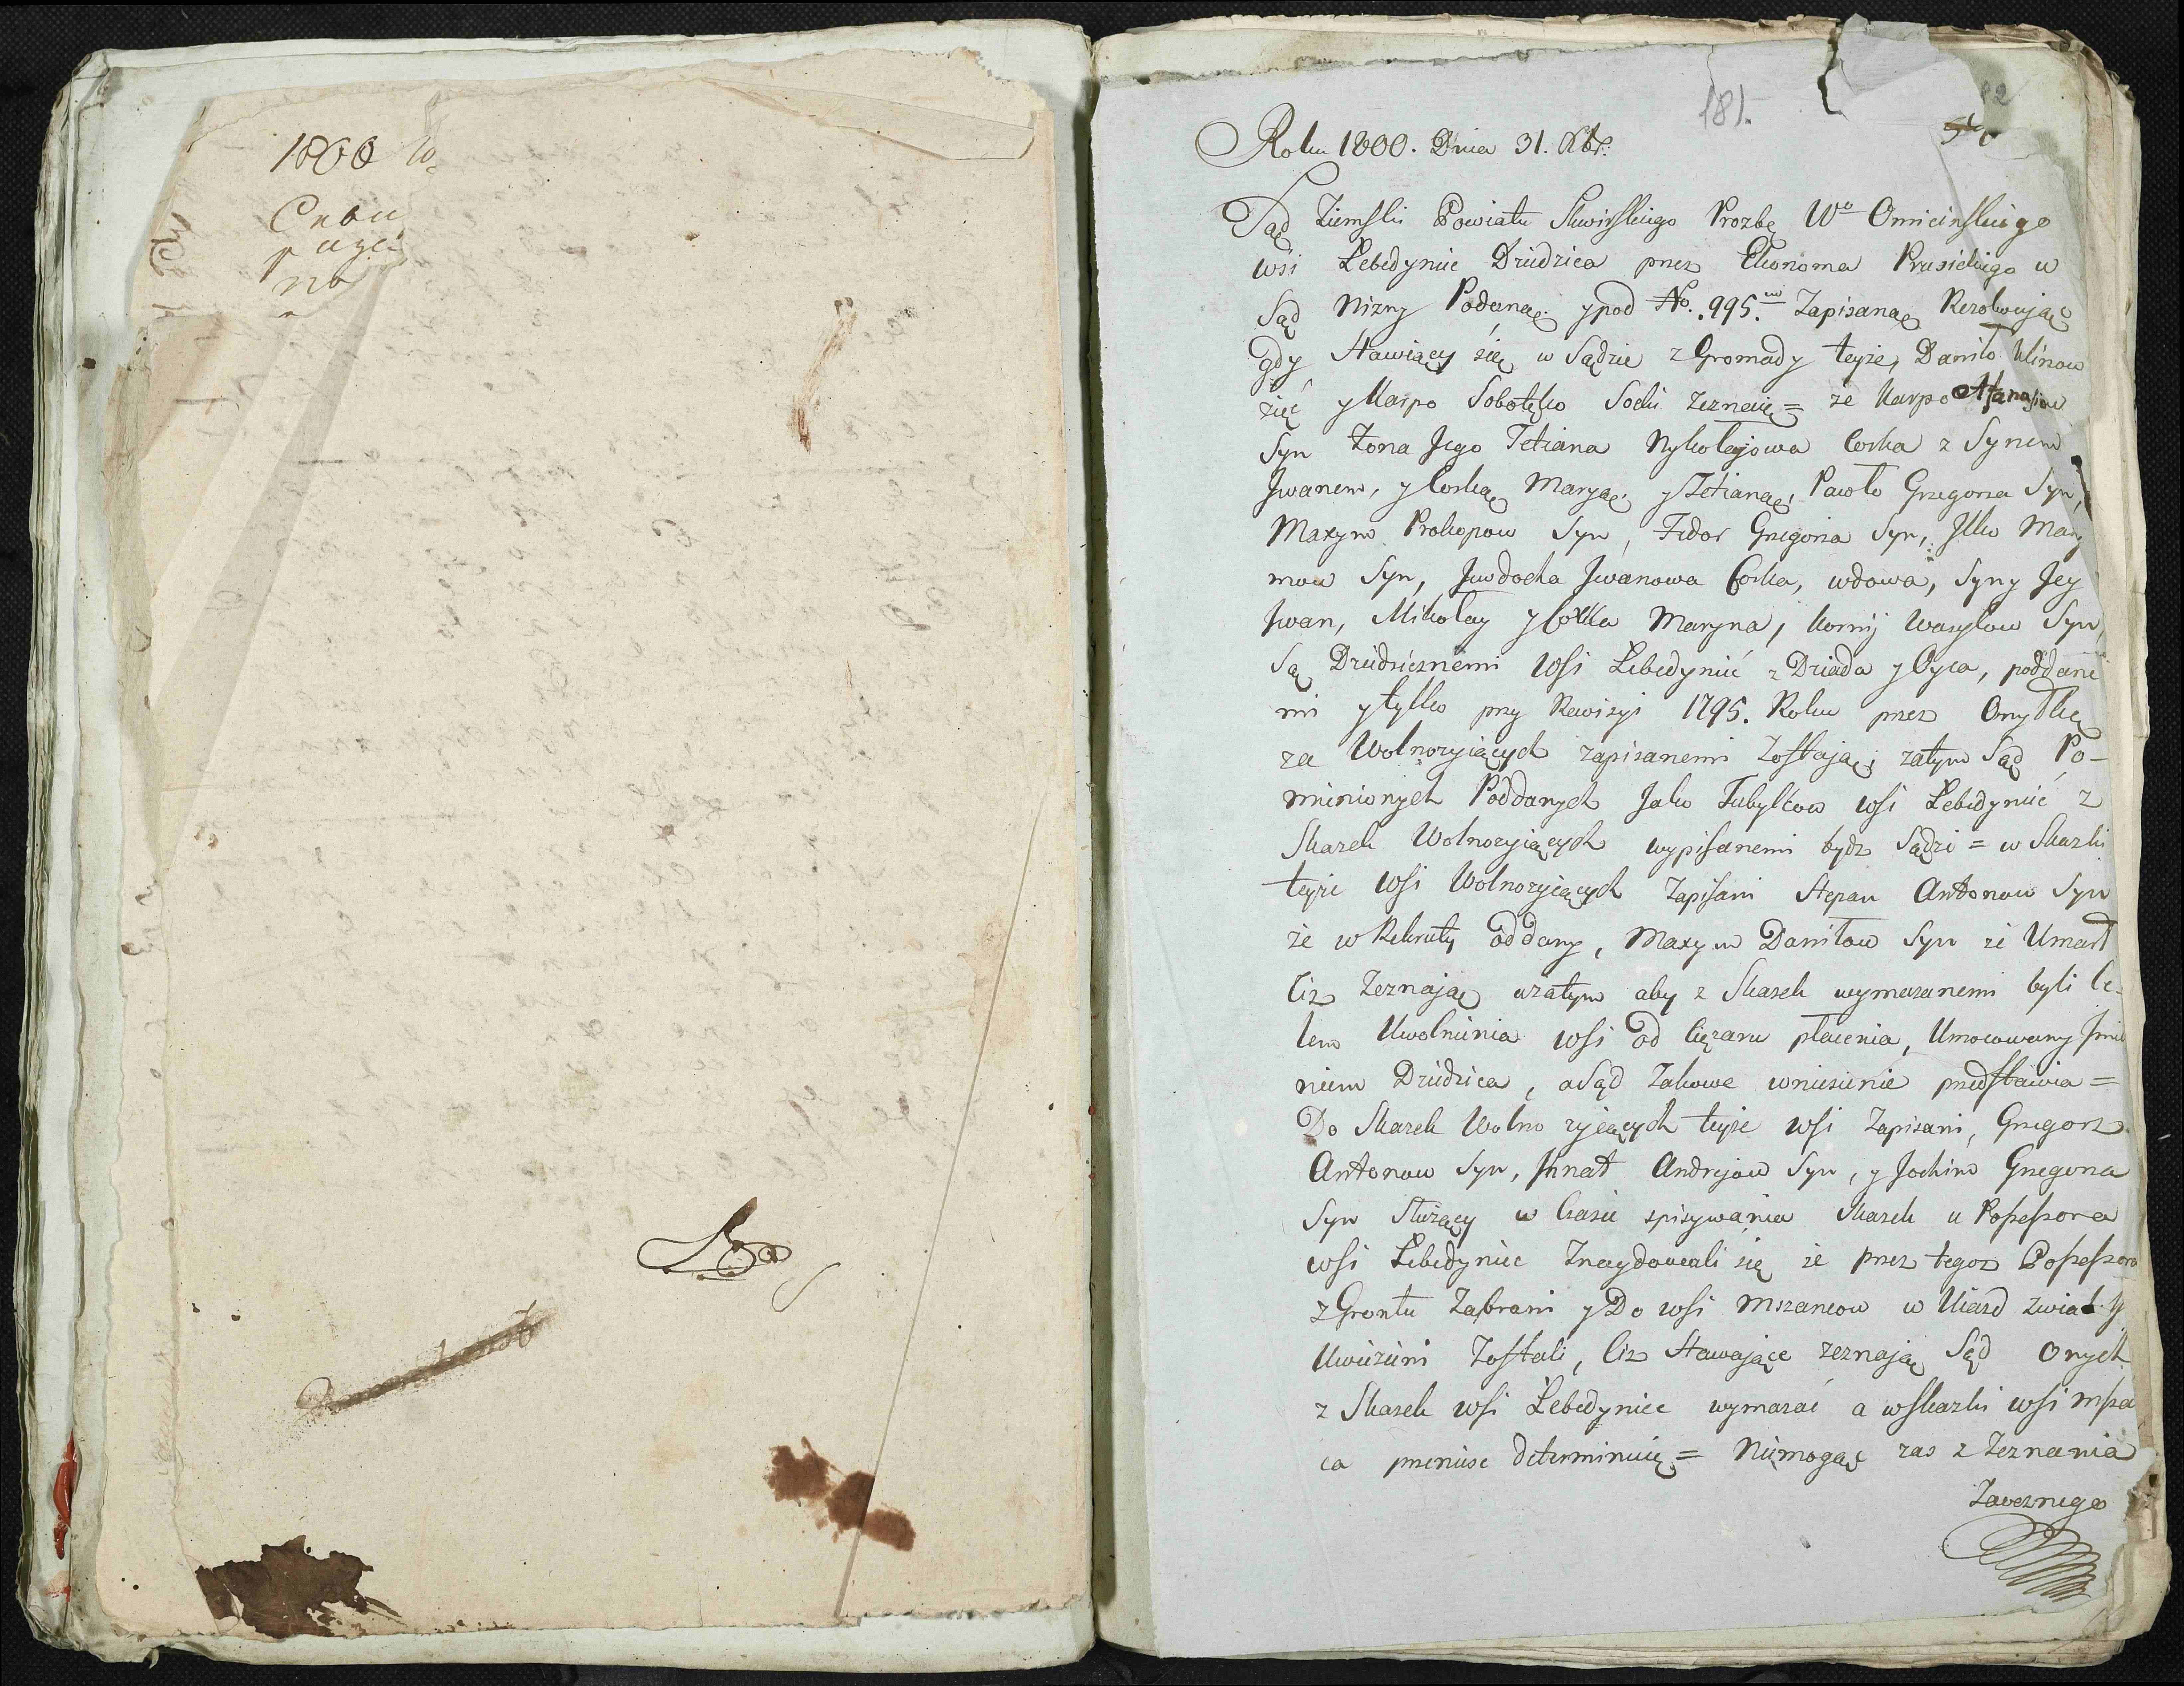 1800
181.
Roku 1800. Dnia 31. Xbr:
Sąd Ziemski Powiatu Skwirskiego Prozbę Wo Omiecinskiego
wsi Łebedyniec Dziedzica przez Ekonoma Prusickiego w
Sąd Nizny Podaną ypod No. 995. Zapisaną Rezolwując
gdy Stawiący się w Sądzie z Gromady teyże, Daniło Klimow
zięć y Karpo Sobotęko Socki zeznaię = że Karpo Afanasiow
Syn Żona Jego Tetiana Nykołajowa Corka z Synem
Jwanem, y Corką Maryą, y Tetianą, Pawło Grzegorza Syn,
Maxym Prokopow Syn, Fedor Grzegorza Syn, Jlko Maxy
mow Syn, Jwdocha Jwanowa Corka, wdowa, Syny Jey
Jwan, Mikołay y Corka Maryna, Kornij Wasylow Syn,
Są Dziedzicznemi wsi Łebedyniec z Dziada y Oyca, poddane
mi y tylko przy Rewizyi 1795. Roku przez Omyłkę
za Wolnożyiących zapisanemi Zostają; zatym Sąd Po-
mienionych Poddanych Jako Tubylców wsi Łebedyniec z
Skazek Wolnożyiących wypisanemi bydz Sądzi = w Skazki
teyże wsi Wolnożyiących Zapisani Stepan Antonow Syn
że w Rekruty oddany, Maxym Daniłow Syn że Umarł
Ciz Zeznają azatym aby z Skazek wymazanemi byli Ce-
lem Uwolnienia wsi od Ciężaru płacenia, Umocowany Jmie
niem Dziedzica, a Sąd Takowe wniesienie przedstawia =
Do Skazek Wolno żyiących teyże wsi Zapisani, Grzegorz
Antonow Syn, Jhnat Andrejow Syn, y Jochim Grzegorza
Syn Służący w Czasie spisywania Skazek u Possessora
wsi Łebedyniec Znaydowali się że przez tegoz Possessora
z Gruntu Zabrani y Do wsi Mszancow w Uiazd Zwiah.
Uwiezieni Zostali, Ciz Stawające zeznają Sąd Onych
z Skazek wsi Łebedyniec wymazać a w Skazki wsi Msza
ca przeniesc determinuię = Niemogąc zas z Zeznania
Zaocznego